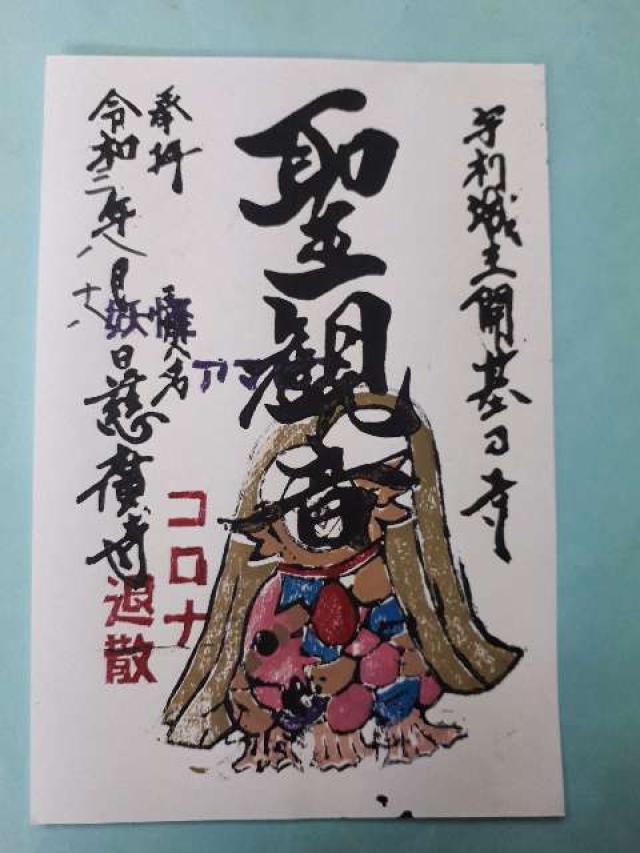 宇利城主開基の寺
聖観音
奉拝
令和二年八月十八日
慈廣寺
妖怪
アマ
コロナ
退散